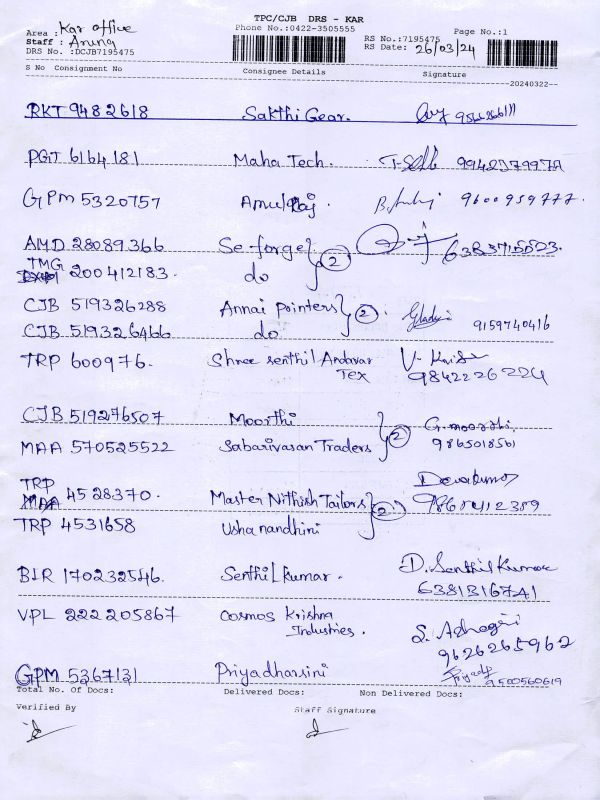 TPC/CJB DRS - KAR
Area : Kar office Phone No.:0422-3505555 Page No.:1
Staff : Arung RS No.:7195475
DRS No. :DCJB7195475 RS Date: 26/03/24
S No Consignment No Consignee Details Signature
20240322--
RKT 9482618 Sakthi Gear.
PGT 6164181 Maha Tech.
GPM 5320757 Amulraj 9600959777.
AMD 28089366 Se-forge
TMG 200412183. do 2
CJB 519326288 Annai printers 2
CJB 519326466 do 9159740416
TRP 600976. Shree Senthil Andavar
Tex 9842226224
CJB 519276507 Moorthi G. moorthi,
MAA 570525522 Sabarivasan Traders 2 9865018561
TRP 4528370. Master Nithish Tailors 2
TRP 4531658 Usha nandhini
BIR 170232546. Senthil kumar. D. Senthil Kumar
VPL 222205867 Cosmos Krishna
Industries. 9626265962
GPM 5367131 Priyadharsini Priyadh
9500560619
Total No. Of Docs: Delivered Docs: Non Delivered Docs:
Verified By Staff Signature